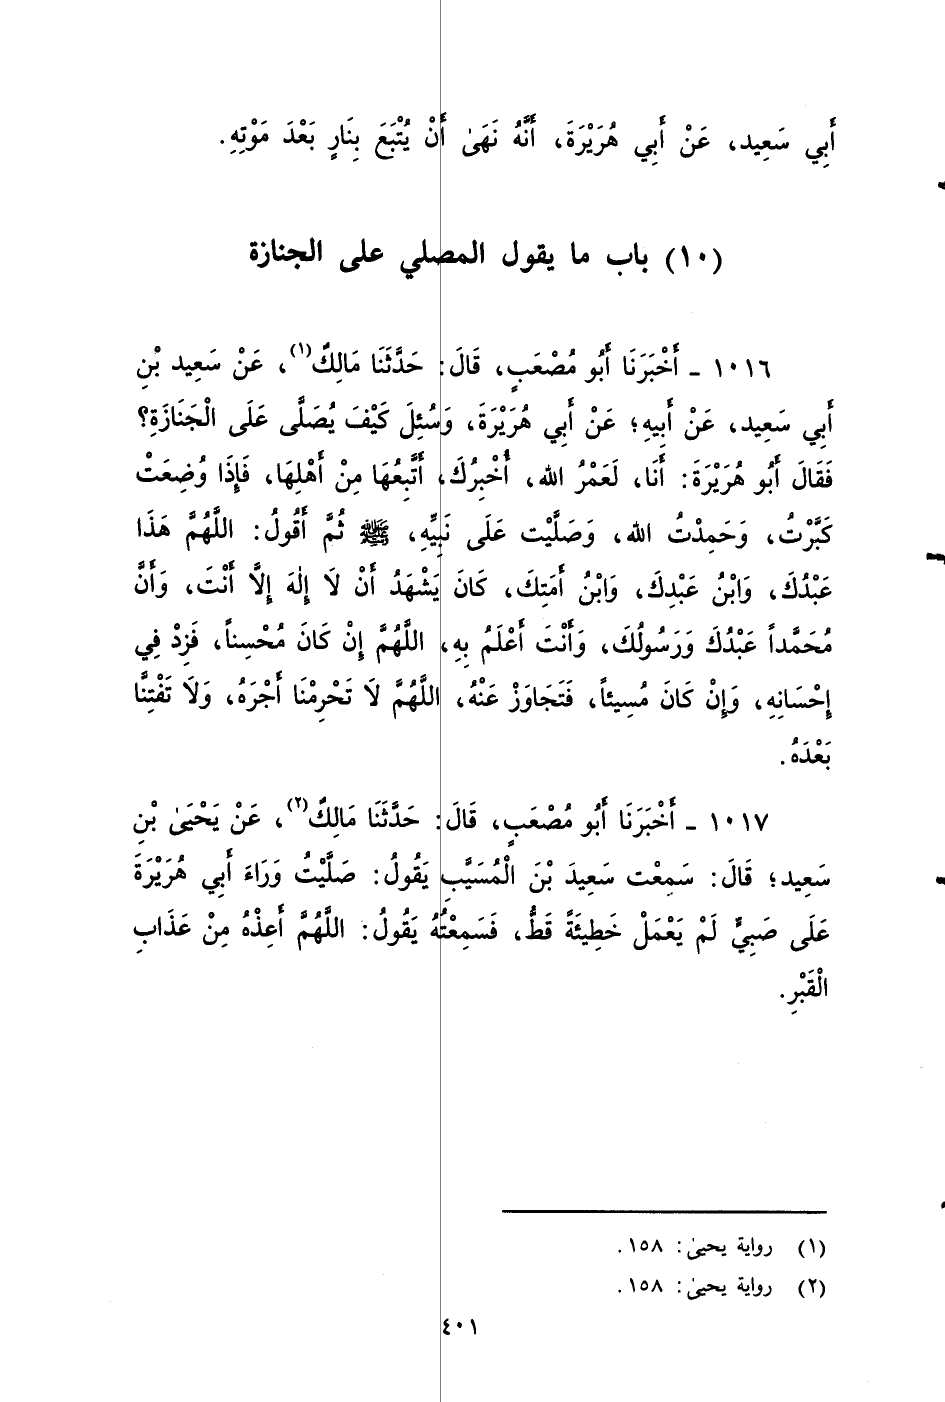 أَبِي سَعِيد، عَنْ أَبِي هُرَيْرَةَ، أَنَّهُ نَهَىٰ أَنْ يُتْبَعَ بِنَارٍ بَعْدَ مَوْتِهِ.
(١٠) باب ما يقول المصلي على الجنازة
١٠١٦ ـ أَخْبَرَنَا أَبُو مُصْعَبٍ، قَالَ: حَدَّثَنَا مَالِكٌ(١)، عَنْ سَعِيد بْنِ
أَبِي سَعِيد، عَنْ أَبِيهِ؛ عَنْ أَبِي هُرَيْرَةَ، وَسُئِلَ كَيْفَ يُصَلَّى عَلَى الْجَنَازَةِ؟
فَقَالَ أَبُو هُرَيْرَةَ: أَنَا، لَعَمْرُ الله، أُخْبِرُكَ، أَتَّبِعُهَا مِنْ أَهْلِهَا، فَإِذَا وُضِعَتْ
كَبَّرْتُ، وَحَمِدْتُ الله، وَصَلَّيْت عَلَى نَبِيِّهِ، ﷺ ثُمَّ أَقُولُ: اللَّهُمَّ هَذَا
عَبْدُكَ، وَابْنُ عَبْدِكَ، وَابْنُ أَمَتِكَ، كَانَ يَشْهَدُ أَنْ لَا إِلٰهَ إِلَّا أَنْتَ، وَأَنَّ
مُحَمَّداً عَبْدُكَ وَرَسُولُكَ، وَأَنْتَ أَعْلَمُ بِهِ، اللَّهُمَّ إِنْ كَانَ مُحْسِناً، فَزِدْ فِي
إِحْسَانِهِ، وَإِنْ كَانَ مُسِيئاً، فَتَجَاوَزْ عَنْهُ، اللَّهُمَّ لَا تَحْرِمْنَا أَجْرَهُ، وَلَا تَفْتِنَّا
بَعْدَهُ.
١٠١٧ ـ أَخْبَرَنَا أَبُو مُصْعَبٍ، قَالَ: حَدَّثَنَا مَالِكٌ(٢)، عَنْ يَحْيَىٰ بْنِ
سَعِيد؛ قَالَ: سَمِعْت سَعِيدَ بْنَ الْمُسَيَّبِ يَقُولُ: صَلَّيْتُ وَرَاءَ أَبِي هُرَيْرَةَ
عَلَى صَبِيٍّ لَمْ يَعْمَلْ خَطِيئَةً قَطُّ، فَسَمِعْتُهُ يَقُولُ: اللَّهُمَّ أَعِذْهُ مِنْ عَذَابِ
الْقَبْرِ.
(١) رواية يحيىٰ: ١٥٨.
(٢) رواية يحيىٰ: ١٥٨.
٤٠١